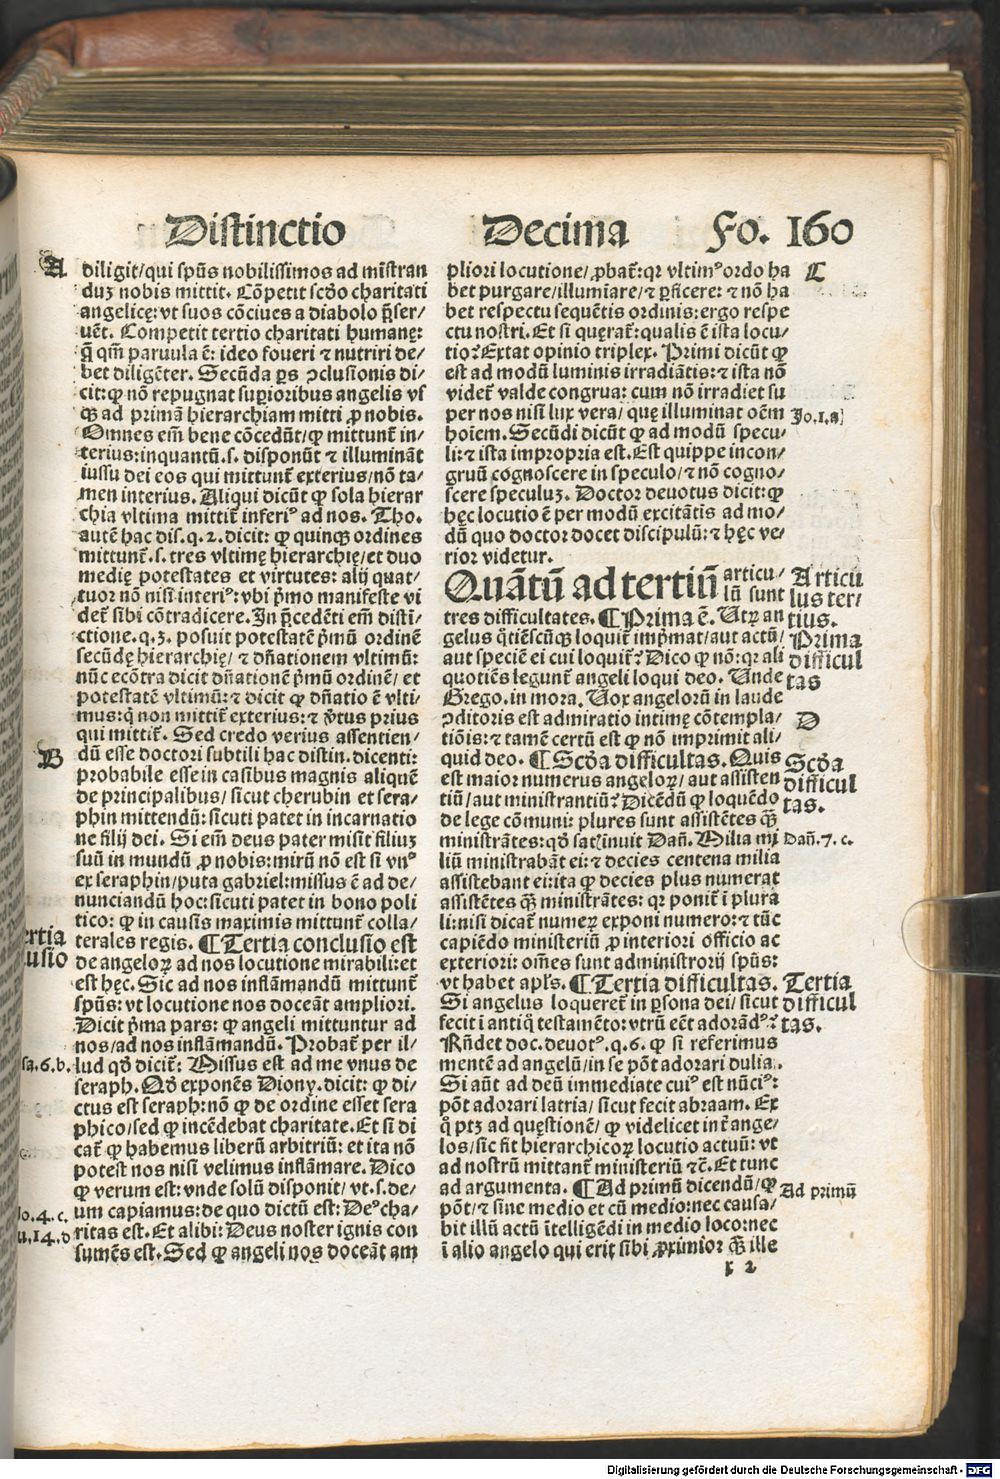 Distinctio Decima Fo. 160
A
diligit/qui spūs nobilissimos ad mīstran
duʒ nobis mittit. Cōpetit scďo charitati
angelicę: vt suos cōciues a diabolo p̄ser/
uēt. Competit tertio charitati humanę:
q̄ qm̄ paruula ē: ideo foueri ⁊ nutriri de/
bet diligēter. Secūda ꝑs ↄclusionis di/
cit: ꝙ nō repugnat suꝑioribus angelis vſ
qꝫ ad primā hierarchiam mitti ꝓ nobis.
Omnes em̄ bene cōcedūt/ꝙ mittunt̄ in/
terius: inquantū.s. disponūt ⁊ illumināt
iussu dei eos qui mittunt̄ exterius/nō ta/
men interius. Aliqui dicūt ꝙ sola hierar
chia vltima mittit̄ inferiꝰ ad nos. Tho.
autē hac dis.q.2.dicit: ꝙ quinqꝫ ordines
mittunt̄.s. tres vltimę hierarchię/et duo
medię potestates et virtutes: alij quat/
tuor nō nisi interiꝰ: vbi p̄mo manifeste vi
det̄ sibi cōtradicere. In p̄cedēti em̄ disti/
ctione.q.3. posuit potestatē p̄mū ordinē
secūdę hierarchię/ ⁊ dn̄ationem vltimū:
nūc ecōtra dicit dn̄ationē p̄mū ordinē/ et
potestatē vltimū: ⁊ dicit ꝙ dn̄atio ē vlti/
mus: q̄ non mittit̄ exterius: ⁊ v̄tus prius
qui mittit̄. Sed credo verius assentien/
B
dū esse doctori subtili hac distin. dicenti:
probabile esse in casibus magnis aliquē
de principalibus/ sicut cherubin et sera/
phin mittendū: sicuti patet in incarnatio
ne filij dei. Si em̄ deus pater misit filiuʒ
suū in mundū ꝓ nobis: mirū nō est si vnꝰ
ex seraphin/puta gabriel: missus ē ad de/
nunciandū hoc: sicuti patet in bono poli
tico: ꝙ in causis maximis mittunt̄ colla/
terales regis. ¶ Tertia conclusio est
ertia
usio
de angeloꝝ ad nos locutione mirabili: et
est hęc. Sic ad nos inflāmandū mittunt̄
spūs: vt locutione nos doceāt ampliori.
Dicit p̄ma pars: ꝙ angeli mittuntur ad
nos/ad nos inflāmandū. Probat̄ per il/
sa.6.b.
lud qď dicit̄: Missus est ad me vnus de
seraph. Qď exponēs Diony. dicit: ꝙ di/
ctus est seraph: nō ꝙ de ordine esset sera
phico/sed ꝙ incēdebat charitate. Et si di
cat̄ ꝙ habemus liberū arbitriū: et ita nō
potest nos nisi velimus inflāmare. Dico
ꝙ verum est: vnde solū disponit/ vt.s.de/
Io.4.c.
um capiamus: de quo dictū est: Deꝰ cha/
u.14.d
ritas est. Et alibi: Deus noster ignis con
sumēs est. Sed ꝙ angeli nos doceāt am
C
pliori locutione/ ꝓbat̄: qꝛ vltimꝰ ordo ha
bet purgare/illumīare/⁊ ꝑficere: ⁊ nō ha
bet respectu sequētis ordinis: ergo respe
ctu nostri. Et si quęrat̄: qualis ē ista locu/
tio? Extat opinio triplex. Primi dicūt ꝙ
est ad modū luminis irradiātis: ⁊ ista nō
videt̄ valde congrua: cum nō irradiet su
per nos nisi lux vera/ quę illuminat oēm
Jo.1.a
hoīem. Secūdi dicūt ꝙ ad modū specu/
li: ⁊ ista impropria est. Est quippe incon/
gruū cognoscere in speculo/ ⁊ nō cogno/
scere speculuʒ. Doctor deuotus dicit: ꝙ
hęc locutio ē per modū excitātis ad mo/
dū quo doctor docet discipulū: ⁊ hęc ve/
rior videtur.
Quātū ad tertiū articu/
lū sunt
Articu
lus ter/
tius.
tres difficultates. ¶ Prima ē. Utꝝ an
gelus q̄tiēscūqꝫ loquit̄ imp̄mat/aut actū/
Prima
difficul
tas
aut speciē ei cui loquit̄? Dico ꝙ nō: qꝛ ali
quotiēs legunt̄ angeli loqui deo. Unde
Grego. in mora. Uox angelorū in laude
D
ↄditoris est admiratio intimę cōtempla/
tiōis: ⁊ tamē certū est ꝙ nō imprimit ali/
quid deo. ¶ Scďa difficultas. Quis
Scďa
difficul
tas.
est maior numerus angeloꝝ/ aut assisten
tiū/aut ministrantiū? Dicēdū ꝙ loquēdo
de lege cōmuni: plures sunt assistētes qꝫ̄
ministrātes: qď sat ↄ̄inuit Dan̄. Milia mi
Dan̄.7.c.
liū ministrabāt ei: ⁊ decies centena milia
assistebant ei: ita ꝙ decies plus numerat
assistētes qꝫ̄ ministrātes: qꝛ ponit̄ i plura
li: nisi dicat̄ numeꝝ exponi numero: ⁊ tūc
capiēdo ministeriū ꝓ interiori officio ac
exteriori: oēs sunt administrorij spūs:
vt habet apl̄s. ¶ Tertia difficultas.
Tertia
difficul
tas.
Si angelus loqueret̄ in ꝑsona dei/ sicut
fecit i antiq̄ testamēto: vtrū eēt adorādꝰ?
Rn̄det doc. deuotꝰ.q.6. ꝙ si referimus
mentē ad angelū/in se pōt adorari dulia.
Si aūt ad deū immediate cuiꝰ est nūciꝰ:
pōt adorari latria/ sicut fecit abraam. Ex
q̄ ptʒ ad quęstionē/ ꝙ videlicet int̄ ange/
los/sic fit hierarchicoꝝ locutio actuū: vt
ad nostrū mittant̄ ministeriū ⁊c̄. Et tunc
ad argumenta. ¶ Ad primū dicendū/ꝙ
Ad primū
pōt/ ⁊ sine medio et cū medio: nec causa/
bit illū actū ītelligēdi in medio loco: nec
i alio angelo qui erit sibi ꝓximior qꝫ̄ ille
x 2
Digitalisierung gefördert durch die Deutsche Forschungsgemeinschaft - DFG